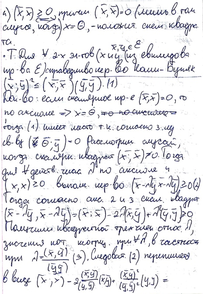 4) (x̄; x̄) ≥ 0, причем (x̄; x̄)=0 (лишь в том
случае, когда x̄ = θ, - положит. скал. квадра
та.
x̄, ȳ ∈ E
• Т. Для ∀ 2-х эл-тов (x̄ и ȳ) из евклидова
пр-ва E справедливо нер-во Коши-Буняк.
(x̄; ȳ)² ≤ (x̄; x̄)(ȳ; ȳ). (1)
Док-во: если скалярное пр-е (x̄; x̄)=0, то
по аксиоме x̄ = θ,
тогда (1) имеет место т.к. согласно
(θ; ȳ) = 0 Рассмотрим случай,
когда скалярн. квадрат (x̄; x̄) ≠ 0. Тогда
для ∀ действ. числа λ по аксиоме 4
выполн. нер-во (x̄-λȳ; x̄-λȳ) ≥ 0 (2)
Тогда согласно акс. 2 и 3 скал. квадрат
(x̄-λȳ, x̄-λȳ) = (x̄; x̄) - 2λ(x̄; ȳ) + λ²(ȳ; ȳ) ≥ 0
Получили квадратный трехчлен относ. λ,
значения кот. неотриц. при ∀ λ, в частности
при λ = (x̄; ȳ)/(ȳ; ȳ) (3). Следоват. (2) перепишем
в виде (x̄; x̄) - 2(x̄; ȳ)/(ȳ; ȳ) (x̄; ȳ) + (x̄; ȳ)²/(ȳ; ȳ)² (ȳ; ȳ) =